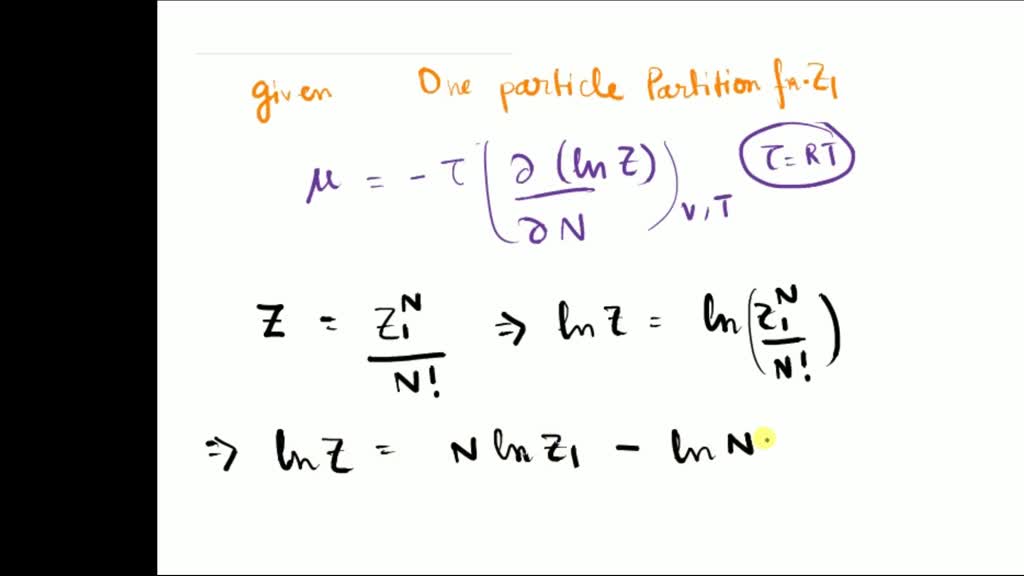 given One particle Partition fn. Z₁
μ = - τ (∂ (ln Z) / ∂ N)_V,T τ = RT
Z = Z₁^N / N! ⇒ ln Z = ln (Z₁^N / N!)
⇒ ln Z = N ln Z₁ - ln N